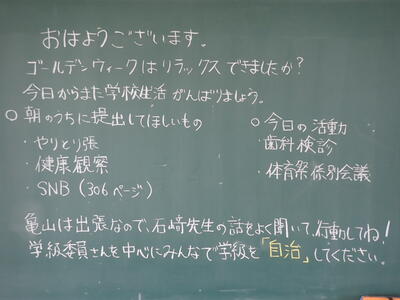 おはようございます。
ゴールデンウィークはリラックスできましたか?
今日からまた学校生活がんばりましょう。
○朝のうちに提出してほしいもの
・やりとり張
・健康観察
・SNB(306ページ)
○今日の活動
・歯科検診
・体育祭係別会議
亀山は出張なので、石崎先生の話をよく聞いて、行動してね!
学級委員さんを中心にみんなで学級を「自治」してください。